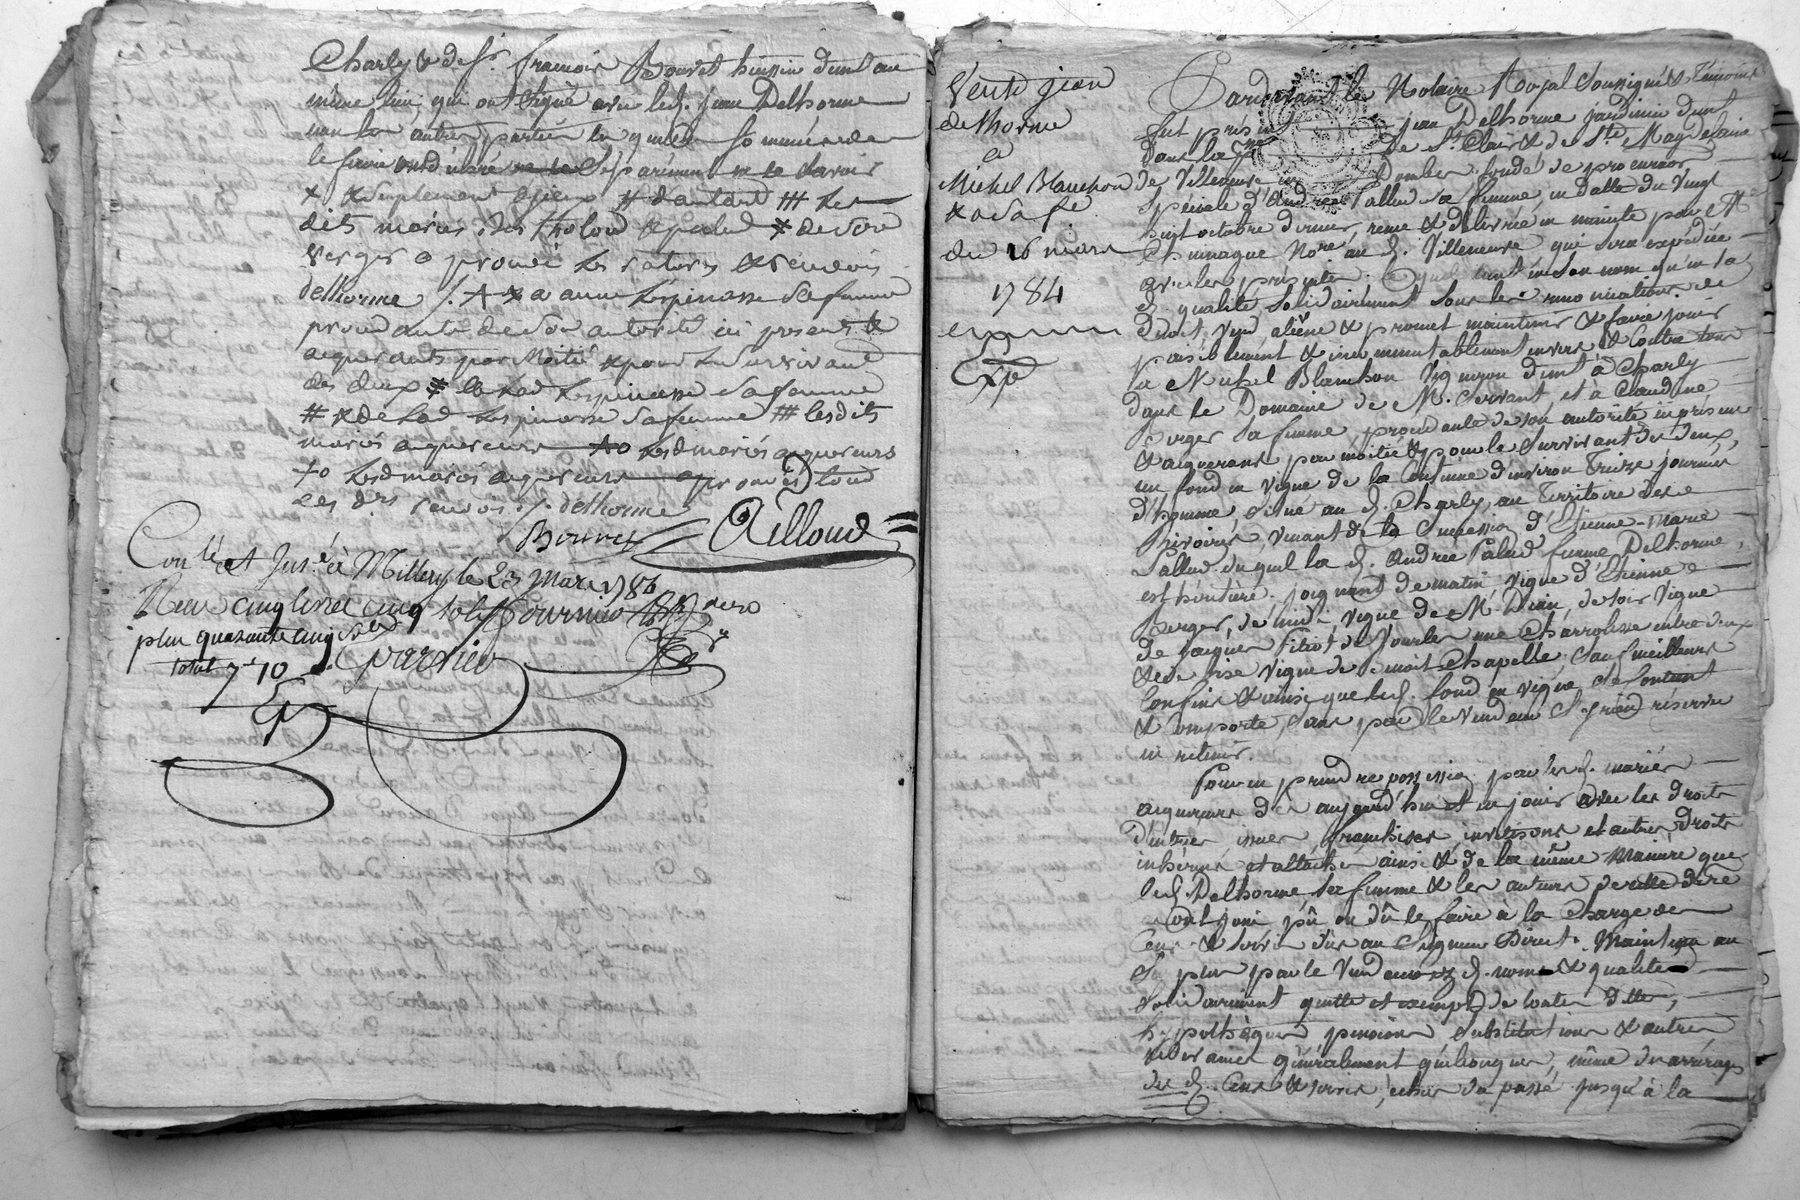 Charly & de Sr. francois Bouvet huissier demt. au
même lieu, qui ont signé avec led. jean Delhorme
non les autres parties
le faire separément
dits mariés
verger approuvé les ratures & renvois
delhorme /. a anne Lespinasse sa femme
procédante de son autorité ici presente &
acquerants par moitié & pour le survivant
des deux # Lad. Lespinasse sa femme
# & de Lad. Lespinasse sa femme ### lesdits
mariés acquereurs +o Lesd. mariés acquereurs
+o Lesd. mariés acquereurs approuvés tous
les d.rs renvois /. delhorme
Bouvet Ailloud
Con.lé et Ins.é à Millery le 23 Mars 1784
Reçu cinq livres cinq sols
plus quarante cinq sols
total 7 " 10 s.
Vente jean
delhorme
a
Michel Blanchon
& a sa fe.
du 16 mars
1784
Exp.
Pardevant le Notaire Royal soussigné & Témoins
fut présent jean Delhorme jardinier demt.
dans la de St. Clair & de Ste. Magdelaine
de Villeneuve en Dombes, fondé de procuration
spéciale d'Andrée Pallud sa femme, en datte du vingt
sept octobre dernier, reçue & délivrée en minute par Me
Chuinague No.re au d. Villeneuve qui sera expédiée
avec les présentes. Lequel tant en son nom qu'en la
d. qualité solidairement sous les renonciations de
droit, vend aliène & promet maintenir & faire jouir
paisiblement & incommutablement envers & contre tous
à Michel Blanchon Vigneron demt. à Charly
dans le Domaine de M. Servant, et à Claudine
Verger sa femme procédante de son autorité, ici présens
& acquerans par moitié & pour le survivant des deux,
un fond en vigne de la contenue d'environ treize journées
d'homme, situé au d. Charly, au Territoire des
hivoires, venant de la succession d'Etienne-Marie
Pallud duquel la d. Andrée Pallud femme Delhorme,
est héritière. joignant de matin vigne d'Etienne
Verger, de midi vigne de M. Dian, de soir vigne
de jacques Fitiot de Vourles une charrolesse entre deux
& de bise vigne de Benoit Chapelle, sauf meilleurs
confins & ainsi que led. fond en vigne se contient
& comporte, sans par le vendeur s'y rien réserver
ni retenir.
Pour en prendre possession par les d. mariés
acquereurs dès aujourd'hui et en jouir avec les droits
d'entrées, issues, franchises, investisons et autres droits
inhérents et attachés ainsi & de la même maniere que
led. Delhorme, sa femme & les auteurs de celle-ci
ont joui pû ou dû le faire à la charge des
Cens & servis dûs au Seigneur Direct. Maintenu au
sur plus par le vendeur ez d. noms & qualités
solidairement quitte et exempt de toutes dettes,
hypothèques, pensions, substitutions & autres
redevances généralement quelconques, même des arrérages
des d. Cens & servis, échus du passé jusqu'à la